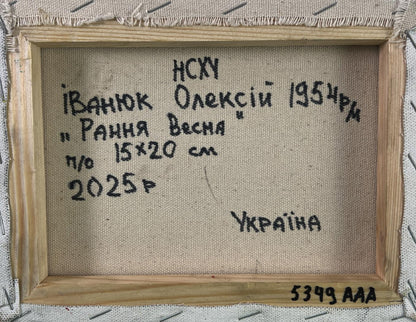 НСХУ
іВАНЮК Олексій 1954 р/м
„Рання Весна"
п/о 15×20 см
2025р
УКРАЇНА
5349 ААА